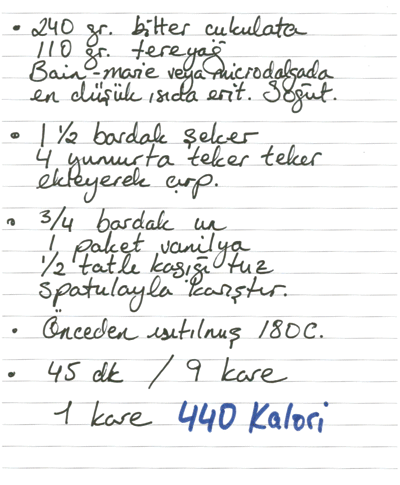 • 240 gr. bitter cukulata
110 gr. tereyağ
Bain-marie veya microdalgada
en düşük ısıda erit. Soğut.
• 1 1/2 bardak şeker
4 yumurta teker teker
ekleyerek çırp.
• 3/4 bardak un
1 paket vanilya
1/2 tatle kaşığı tuz
Spatulayla karıştır.
• Önceden ısıtılmış 180C.
• 45 dk / 9 kare
1 kare 440 Kalori